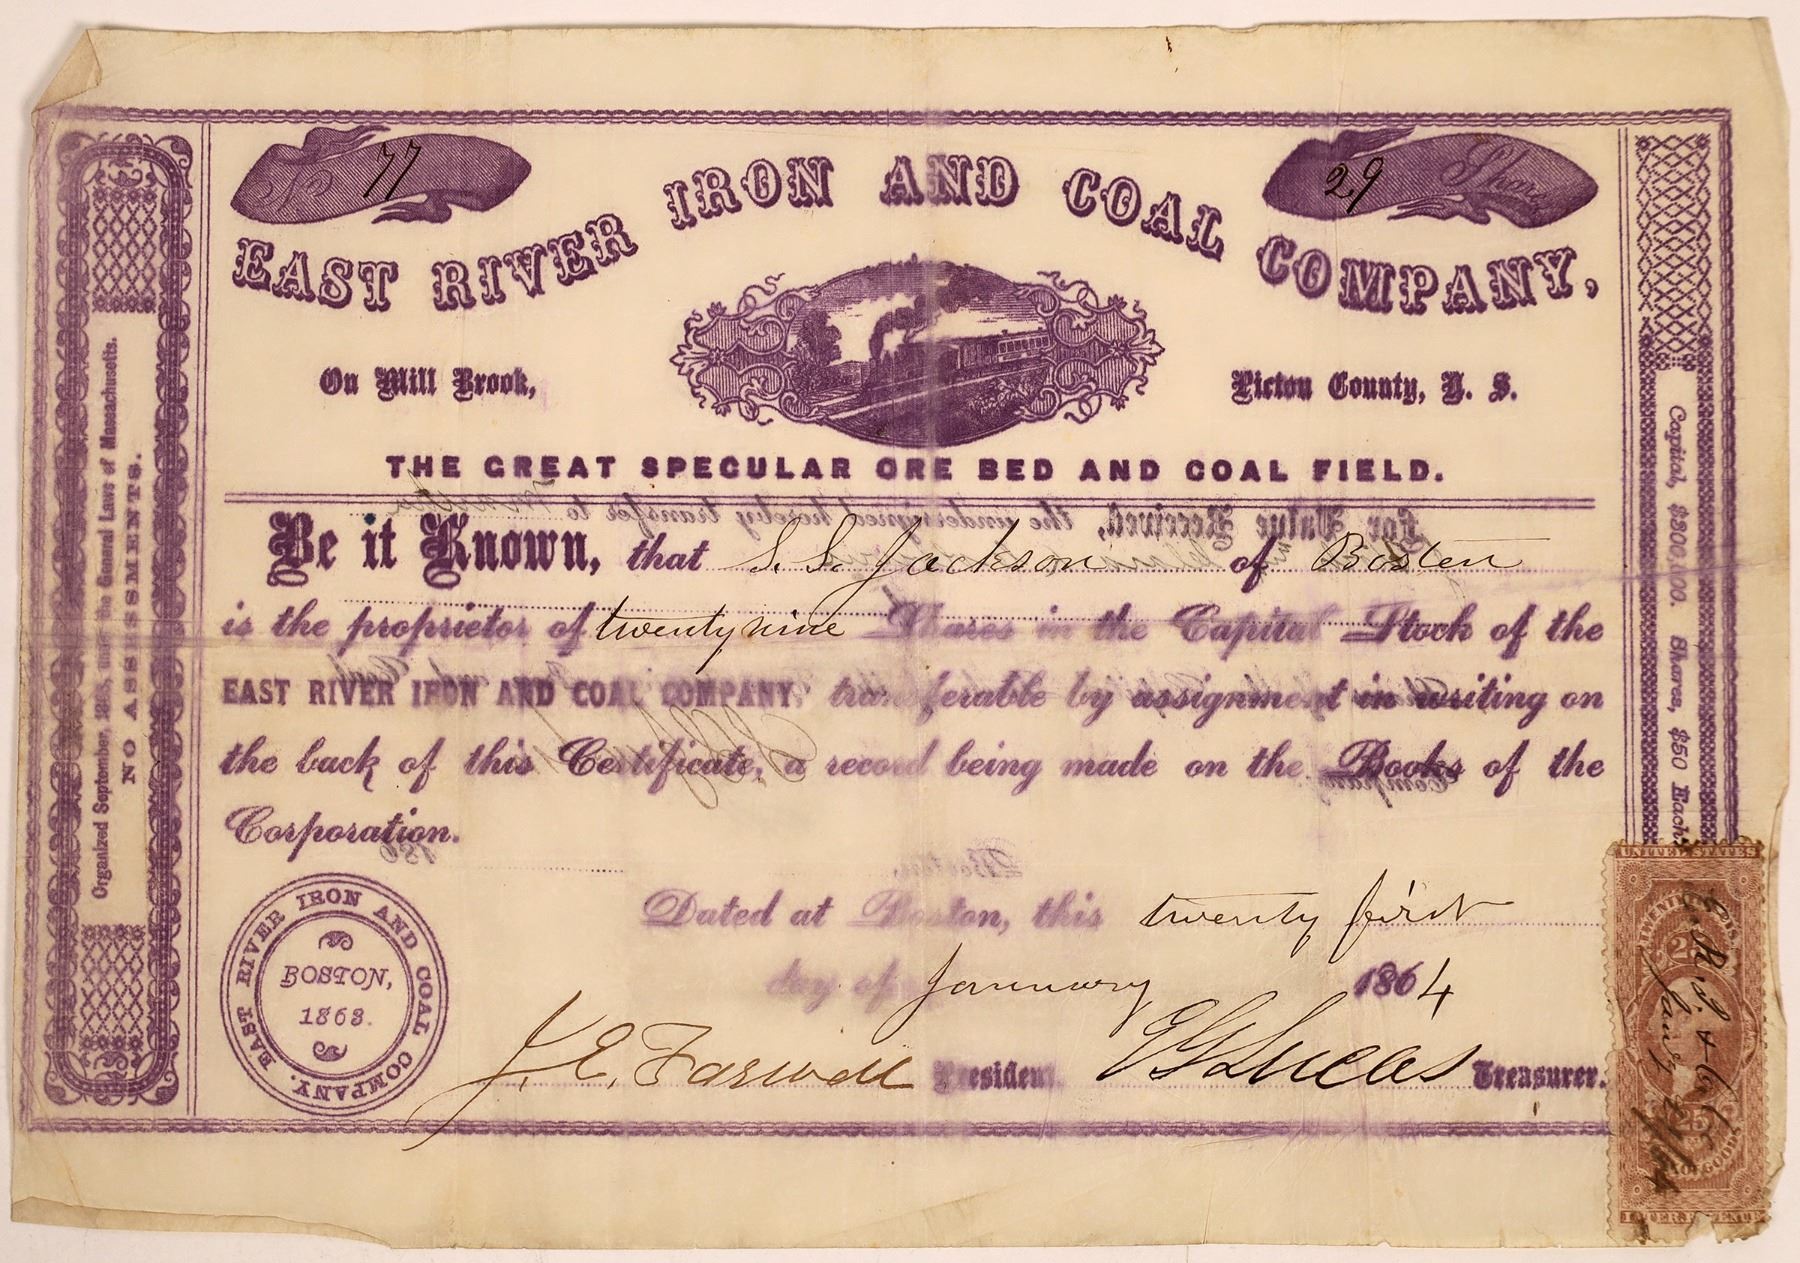 No 77
29 Shares
EAST RIVER IRON AND COAL COMPANY,
On Mill Brook,
Pictou County, N. S.
THE GREAT SPECULAR ORE BED AND COAL FIELD.
Be it Known, that S. S. Jackson of Boston
is the proprietor of twenty nine Shares in the Capital Stock of the
EAST RIVER IRON AND COAL COMPANY, transferable by assignment in writing on
the back of this Certificate, a record being made on the Books of the
Corporation.
Dated at Boston, this twenty first
day of January 1864
J. E. Farwell President. Lucas Treasurer.
EAST RIVER IRON AND COAL COMPANY.
BOSTON,
1863.
Organized September, 1863, under the General Laws of Massachusetts.
NO ASSESSMENTS.
Capital, $300,000. Shares, $50 Each.
UNITED STATES
25
25
OF GOODS
INTER. REVENUE
For Value Received, the undersigned hereby transfer to
Company
Boston,
186